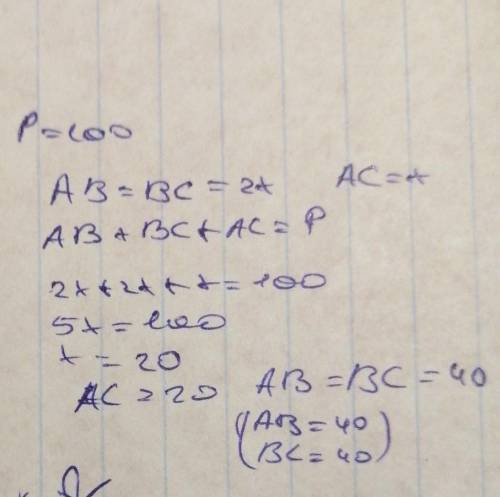 P=100
AB=BC=2x AC=x
AB+BC+AC=P
2x+2x+x=100
5x=100
x=20
AC=20 AB=BC=40
(AB=40
BC=40)